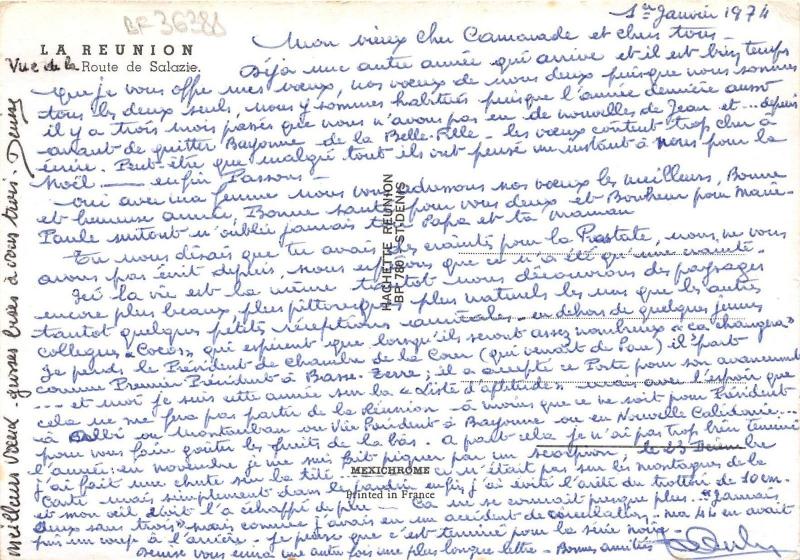 BF 36388
1er Janvier 1974
LA REUNION
Vue de la Route de Salazie.
Mon vieux cher Camarade et chers tous -
Déjà une autre année qui arrive et il est bien temps
que je vous offre mes vœux, nos vœux de nous deux puisque nous sommes
tous les deux seuls, nous y sommes habitués puisque l'année dernière aussi
il y a trois mois passés que nous n'avons pas eu de nouvelles de Jean et ... depuis
avant de quitter Bayonne de la Belle-Fille - les vœux coûtent trop cher à
écrire. Peut-être que malgré tout ils ont pensé un instant à nous pour la
Noël — enfin Passons -
Oui avec ma femme nous vous adressons nos vœux les meilleurs, Bonne
et heureuse année, Bonne santé pour vous deux et Bonheur pour Marie-
Paule surtout n'oublie jamais ton Papa et ta maman
Tu nous disais que tu avais des craintes pour la Prostate, nous ne vous
avons pas écrit depuis, nous espérons que ce n'a été qu'une crainte.
Ici la vie est la même tantôt nous découvrons des paysages
encore plus beaux, plus pittoresques, plus naturels les uns que les autres
tantôt quelques petites réceptions amicales - en dehors de quelques jeunes
collègues "Cocos" qui espèrent que lorsqu'ils seront assez nombreux "ça changera"
je perds le Président de chambre de la Cour (qui venait de Pau) il part
comme Premier Président à Basse-Terre; il a accepté ce Poste pour son avancement
... et moi je suis cette année sur la "Liste d'aptitude" mais avec l'espoir que
cela ne me fera pas partir de la Réunion à moins que ce ne soit pour Président
à Albi ou Montauban ou Vice Président à Bayonne ou en Nouvelle Calédonie...
pour vous faire goûter les fruits de là-bas. A part cela je n'ai pas trop bien terminé
l'année: en novembre je me suis fait piquer par un scorpion, le 23 Décembre
j'ai fait une chute sur la tête ce n'était pas sur les montagnes de la
Carte mais simplement dans le jardin enfin j'ai évité l'arête du trottoir de 10 cm.
et mon œil droit l'a échappé de peu. Ça ne se connait presque plus... "Jamais
deux sans trois" mais comme j'avais eu un accident de circulation, ma 4L en avait
pris un coup à l'arrière. Je pense que c'est terminé pour la série noire -
Denise vous enverra une autre fois une plus longue lettre - Bonnes amitiés
meilleurs vœux - grosses bises à vous trois - Denise
HACHETTE REUNION
BP 780 ST-DENIS
MEXICHROME
Printed in France